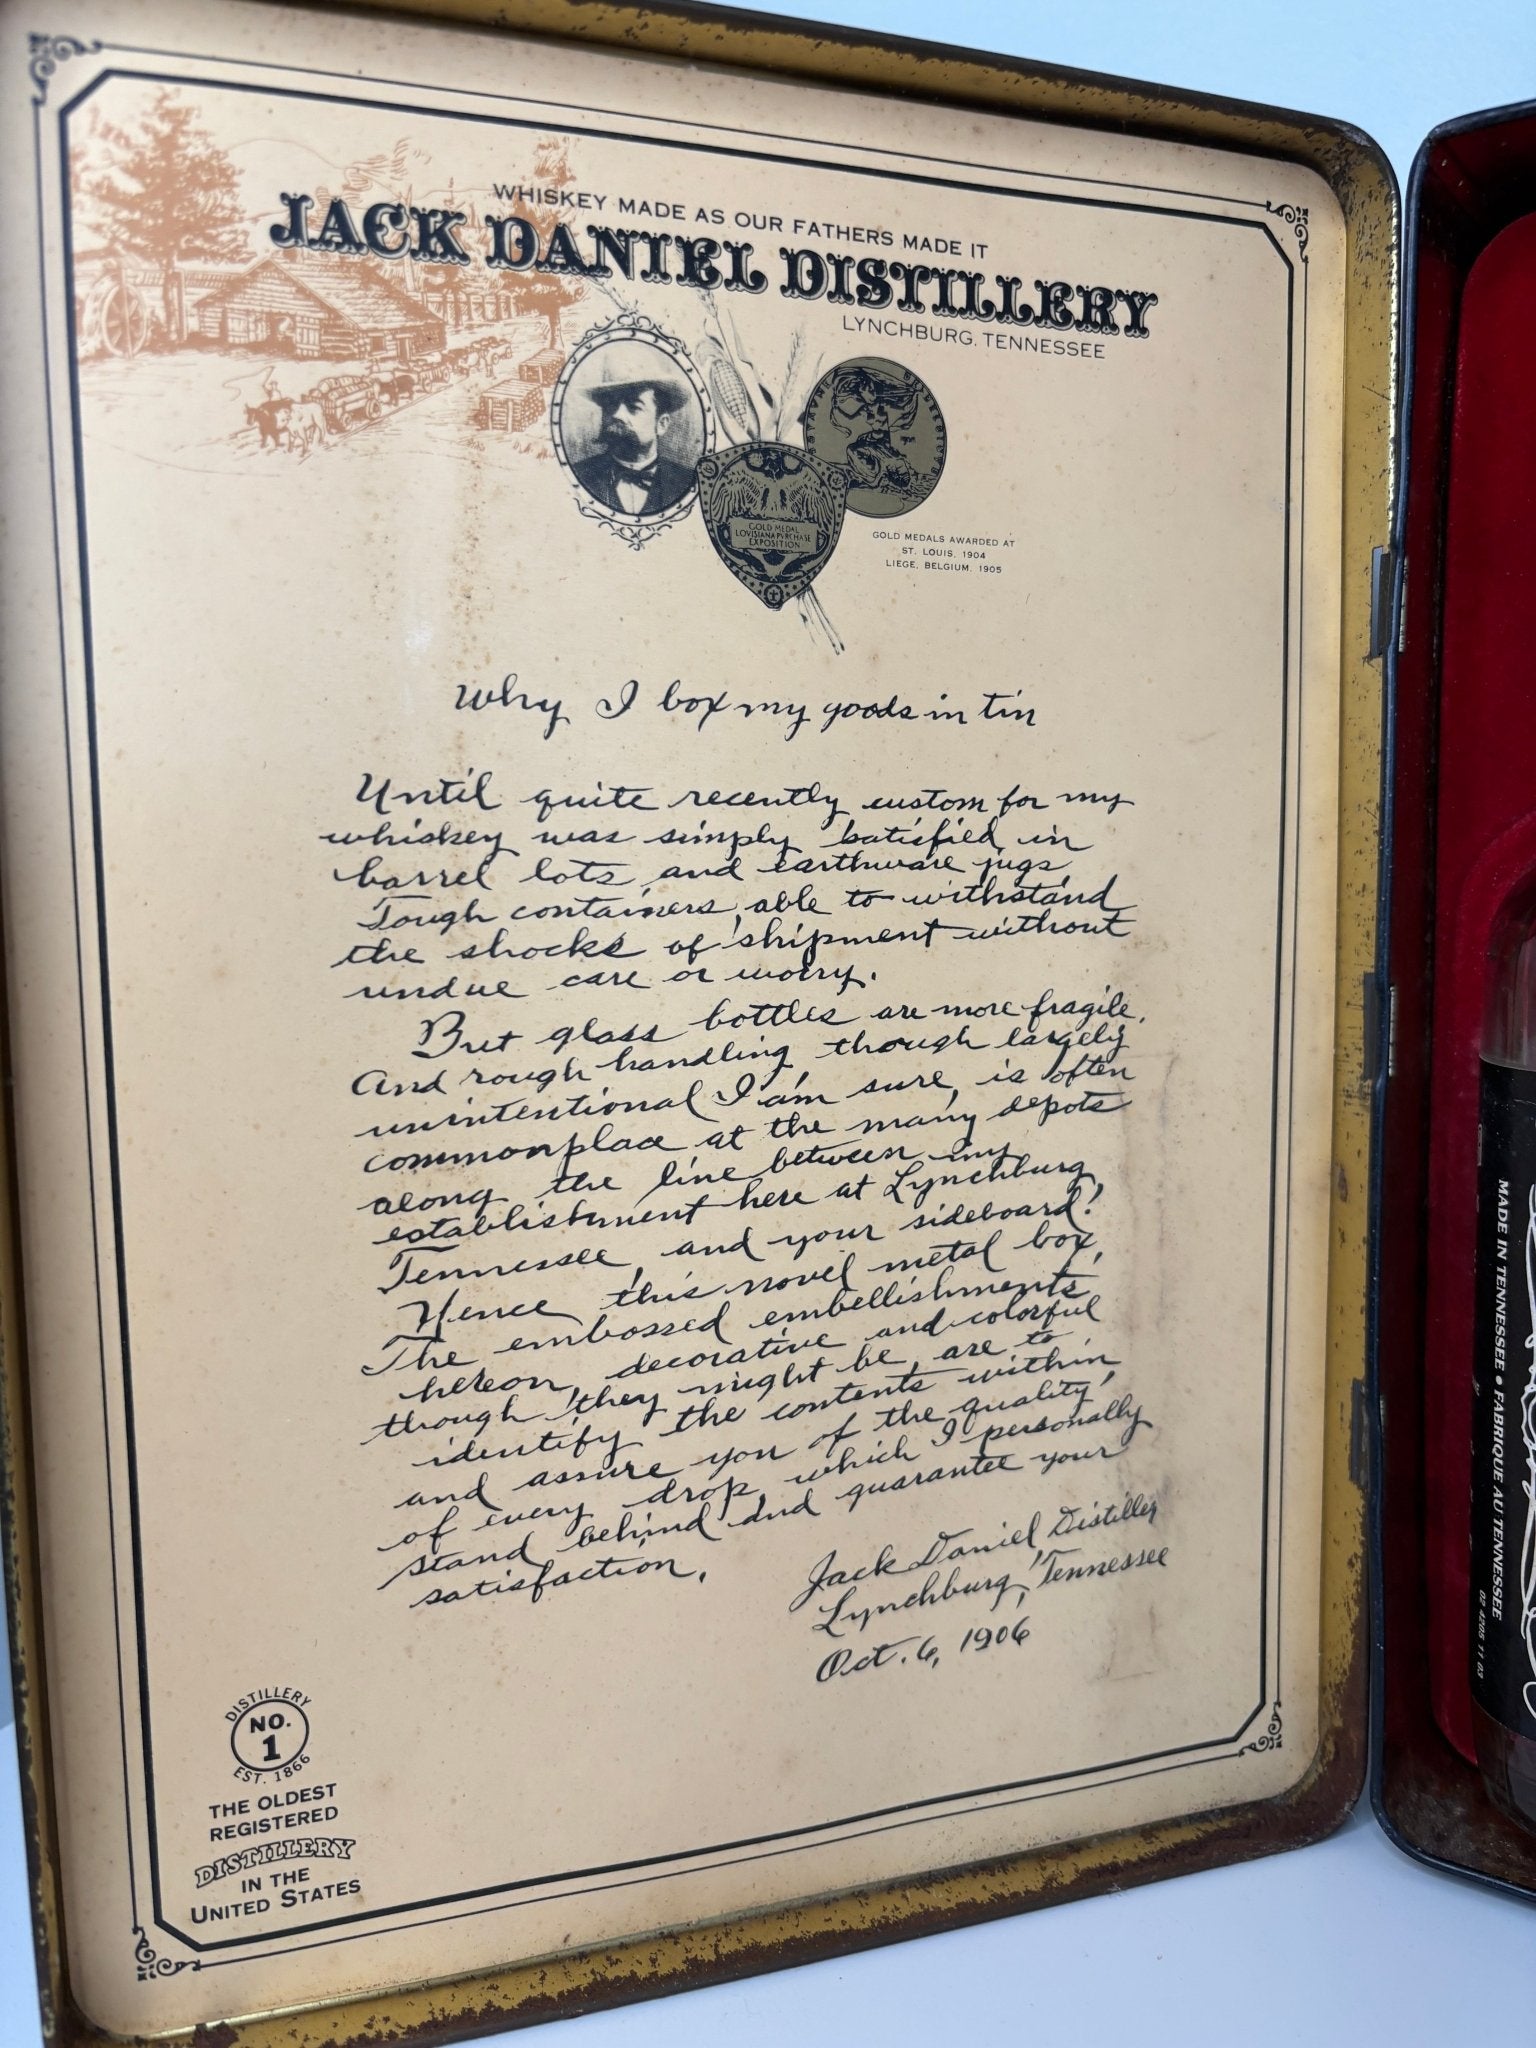 WHISKEY MADE AS OUR FATHERS MADE IT
JACK DANIEL DISTILLERY
LYNCHBURG, TENNESSEE
GOLD MEDAL
LOVISIANA PVRCHASE
EXPOSITION
GOLD MEDALS AWARDED AT
ST. LOUIS, 1904
LIEGE, BELGIUM, 1905
Why I box my goods in tin
Until quite recently custom for my
whiskey was simply satisfied in
barrel lots, and earthware jugs,
Tough containers, able to withstand
the shocks of shipment without
undue care or worry.
But glass bottles are more fragile.
And rough handling though largely
unintentional I am sure, is often
commonplace at the many depots
along the line between my
establishment here at Lynchburg,
Tennessee, and your sideboard!
Hence this novel metal box,
The embossed embellishments
hereon, decorative and colorful
though they might be, are to
identify the contents within,
and assure you of the quality
of every drop, which I personally
stand behind and guarantee your
satisfaction.
Jack Daniel Distiller
Lynchburg, Tennessee
Oct. 6, 1906
DISTILLERY
NO.
1
EST. 1866
THE OLDEST
REGISTERED
DISTILLERY
IN THE
UNITED STATES
MADE IN TENNESSEE • FABRIQUE AU TENNESSEE
02 4205 11 03